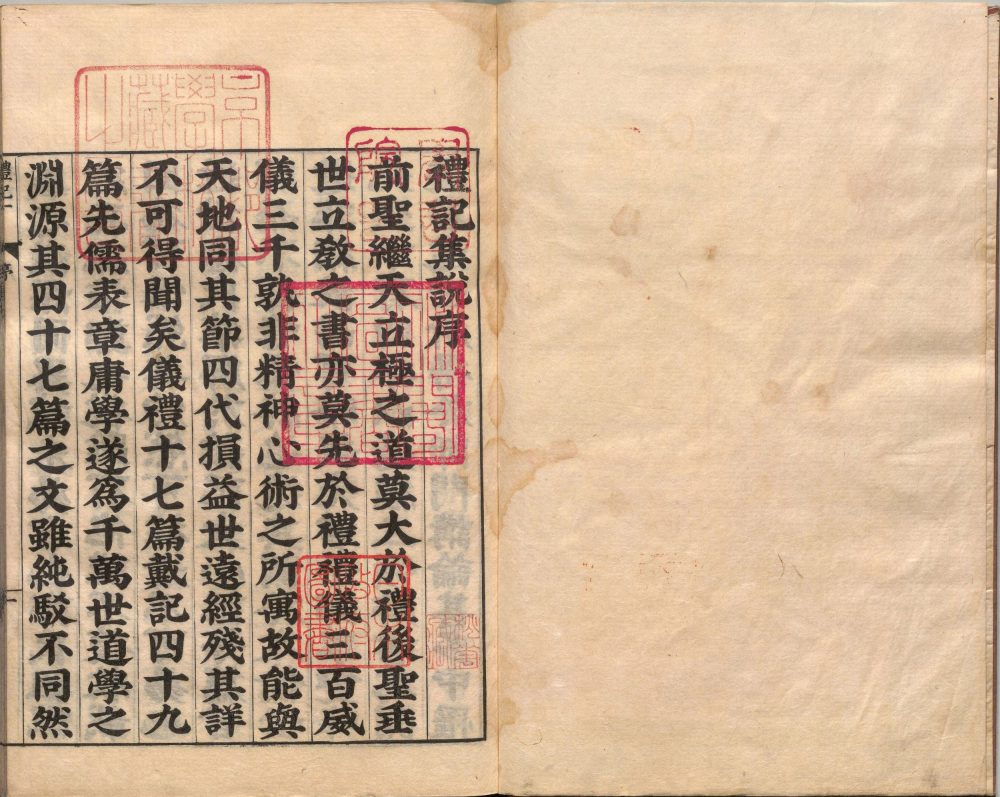 禮記集説序
前聖繼天立極之道莫大於禮後聖垂
世立教之書亦莫先於禮禮儀三百威
儀三千孰非精神心術之所寓故能與
天地同其節四代損益世遠經殘其詳
不可得聞矣儀禮十七篇戴記四十九
篇先儒表章庸學遂爲千萬世道學之
淵源其四十七篇之文雖純駁不同然